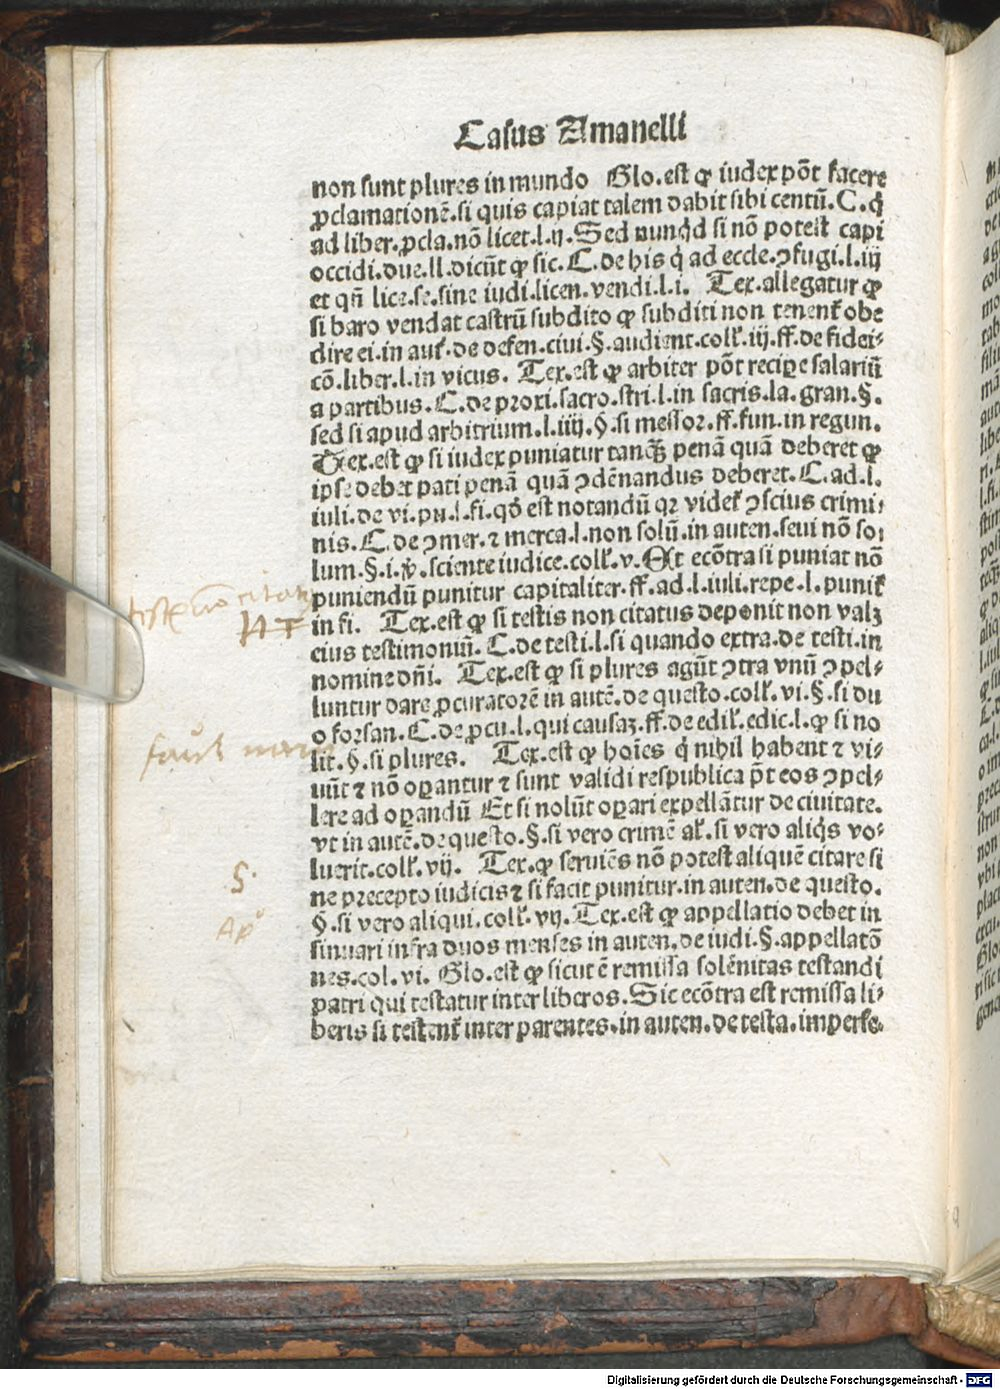 Casus Amanelli
non sunt plures in mundo Glo.est ꝙ iudex põt facere
ꝓclamationẽ.si quis capiat talem dabit sibi centũ.C.q̇
ad liber.ꝓcla.nõ licet.l.ij.Sed nunqd si nõ potest capi
occidi.due.ll.dicũt ꝙ sic.C.de his q̇ ad eccle.ꝯfugi.l.iij
et qñ lice.se.sine iudi.licen.vendi.l.i. Tex.allegatur ꝙ
si baro vendat castrũ subdito ꝙ subditi non tenent̃ obe
dire ei.in aut̃.de defen.ciui.§.audient.coll̃.iij.ff.de fidei⸗
cõ.liber.l.in vicus. Tex.est ꝙ arbiter põt recipe salariũ
a partibus.C.de proxi.sacro.stri.l.in sacris.la.gran.§.
sed si apud arbitrium.l.iiij.§.si messor.ff.fun.in regun.
Tex.est ꝙ si iudex puniatur tanꝗ̃ penã quã deberet ꝙ
ipse debet pati penã quã ꝯdẽnandus deberet.C.ad.l.
iuli.de vi.pu.l.fi.qđ est notandũ qꝛ videt̃ ꝯscius crimi⸗
nis.C.de ꝯmer.⁊ merca.l.non solũ.in auten.seui nõ so⸗
lum.§.i.ꝟ.sciente iudice.coll̃.v.At ecõtra si puniat nõ
puniendũ punitur capitaliter.ff.ad.l.iuli.repe.l.punit̃
in fi. Tex.est ꝙ si testis non citatus deponit non valꝫ
eius testimoniũ. C.de testi.l.si quando extra.de testi.in
nomine dñi. Tex.est ꝙ si plures agũt ꝯtra vnũ ꝯpel⸗
luntur dare ꝓcuratorẽ in autẽ.de questo.coll̃.vi.§.si du
o forsan.C.de ꝓcu.l.qui causaꝫ.ff.de edil̃.edic.l.ꝙ si no
lit.§.si plures. Tex.est ꝙ hoĩes q̇ nihil habent ⁊ vi⸗
uũt ⁊ nõ oꝑantur ⁊ sunt validi respublica p̃t eos ꝯpel⸗
lere ad oꝑandũ Et si nolũt oꝑari expellãtur de ciuitate.
vt in autẽ.de questo.§.si vero crimẽ al̃.si vero aliq̇s vo⸗
luerit.coll̃.vij. Tex.ꝙ seruiẽs nõ potest aliquẽ citare si
ne precepto iudicis ⁊ si facit punitur.in auten.de questo.
§.si vero aliqui.coll̃.vij.Tex.est ꝙ appellatio debet in
sinuari infra duos menses in auten.de iudi.§.appellatõ
nes.col.vi. Glo.est ꝙ sicut ẽ remissa solẽnitas testandi
patri qui testatur inter liberos.Sic ecõtra est remissa li⸗
beris si testent̃ inter parentes.in auten.de testa.imperfe.
S.
Digitalisierung gefördert durch die Deutsche Forschungsgemeinschaft - DFG